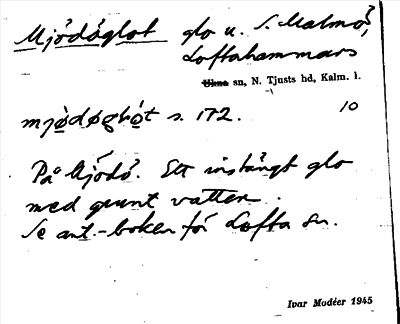 Mjödöglot glo u. S. Malmö,
Loftahammars
Ukna sn, N. Tjusts hd, Kalm. l.
10
s. 172.
På Mjödö. Ett instängt glo
med grunt vatten.
Se ant.-boken för Lofta sn.
Ivar Modéer 1945